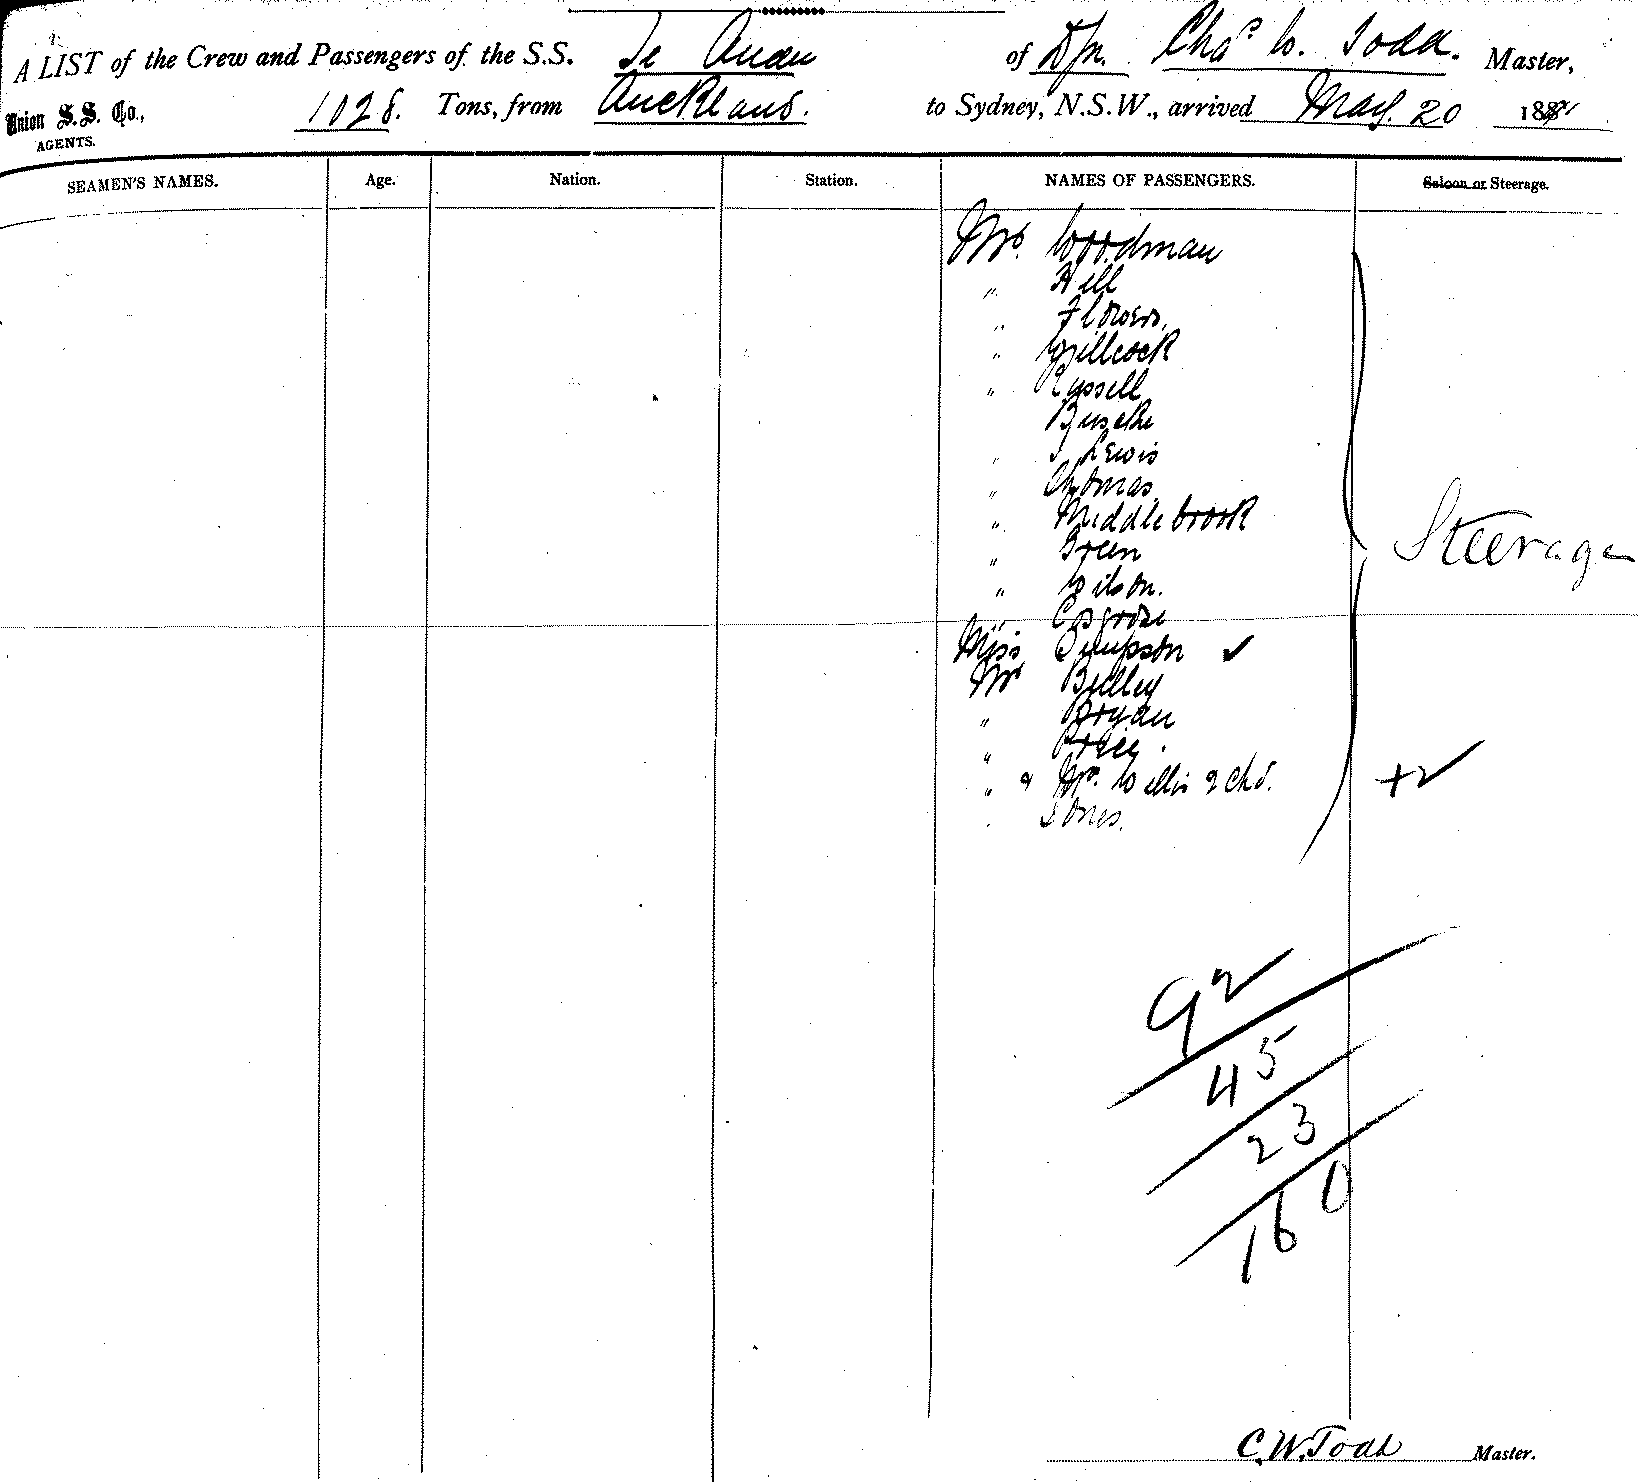 A LIST of the Crew and Passengers of the S.S. Te Anau of Dn. Chas W. Todd. Master,
Union S.S. Co., AGENTS. 1028. Tons, from Auckland. to Sydney, N.S.W., arrived May. 20 188
SEAMEN'S NAMES. Age. Nation. Station. NAMES OF PASSENGERS. Saloon or Steerage.
Mr. Woodman
" Hill
" Flowers.
" Willcock
" Russell
Buscke
" J Lewis
" Thomas.
" Middlebrook
" Green
" Wilson.
" Cosgrove
Miss Simpson ✓
Mr Bulley
" Bryan
" Percy.
" & Mrs. Willis & chd. +2
" Jones.
Steerage
92
45
23
160
C.W. Todd Master.